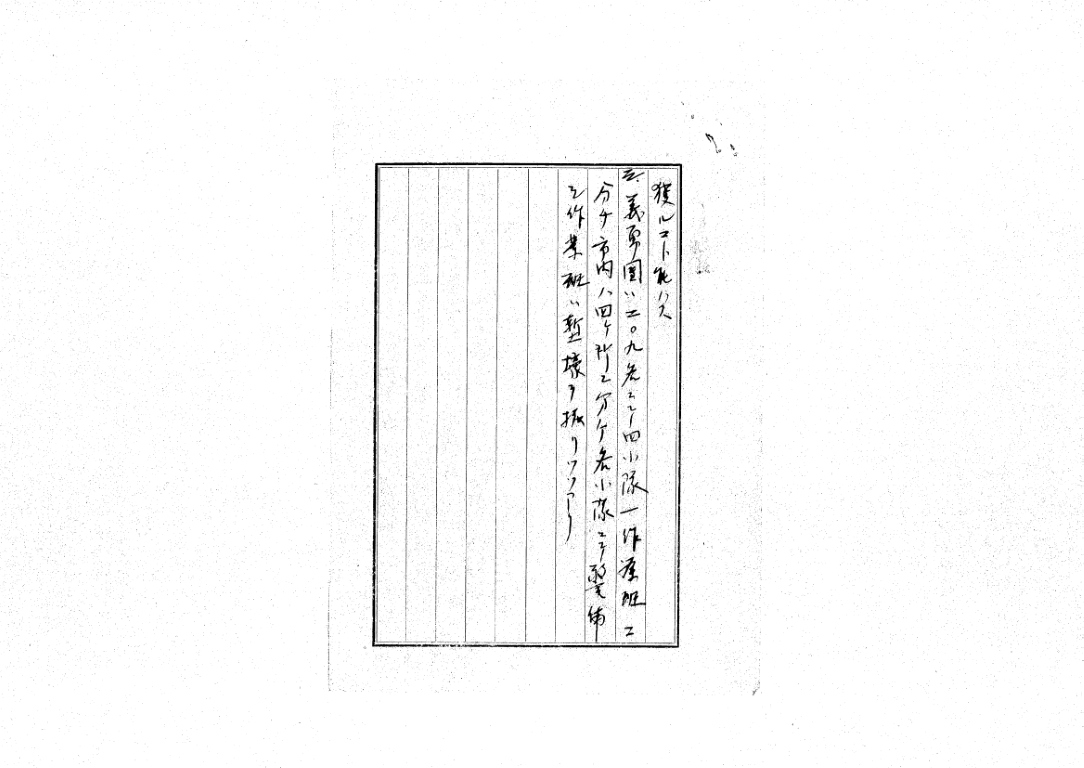 獲ルコト能ハス
三、義勇団ハ二〇九名ニシテ四小隊一作業班ニ
分チ市内ハ四ケ所ニ分ケ各小隊ニテ警備
シ作業班ハ塹壕ヲ掘リツツアリ